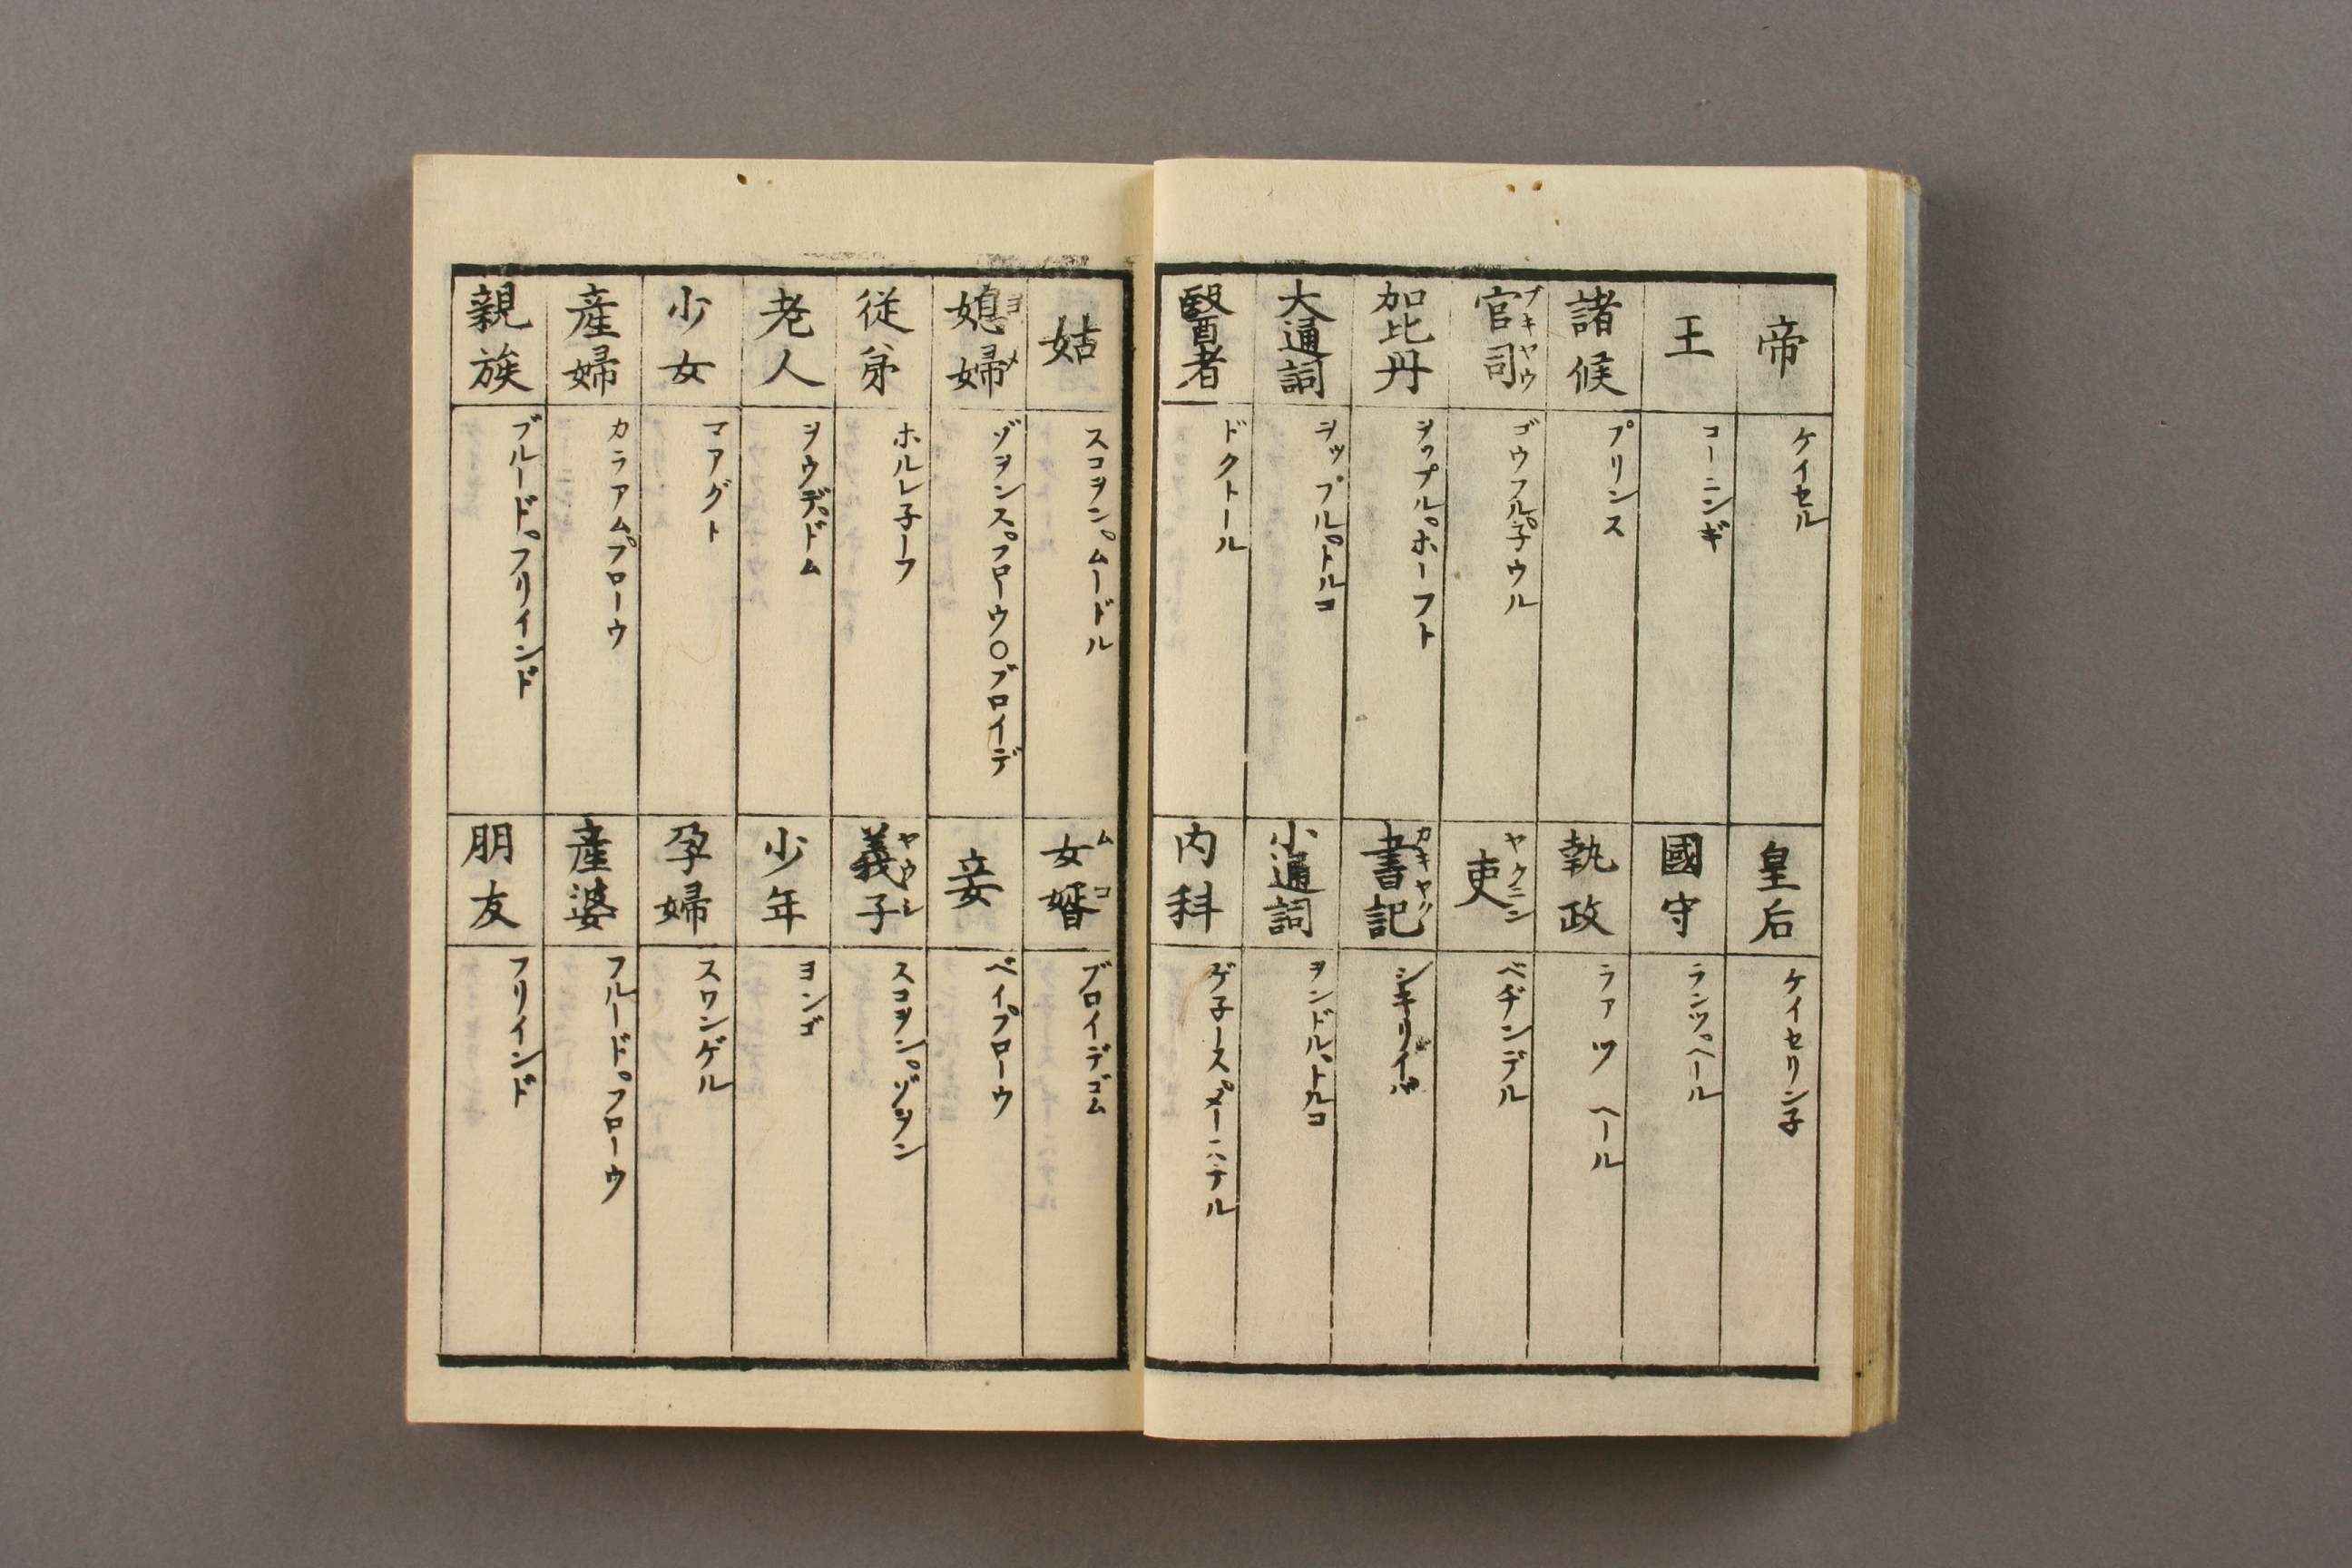 帝 ケイセル
皇后 ケイセリン子
王 コーニンギ
國守 ランツ゜ヘール
諸候 プリンス
執政 ラアツ ヘール
官司 ブキヤウ ゴウフル゜子ウル
吏 ヤクニン ベヂンデル
加比丹 ヲップル゜ホーフト
書記 カキヤク
大通詞 ヲップル゜トルコ
小通詞 ヲンドル゜トルコ
醫者 ドクトール
内科 ゲ子ース゜メーステル
姑 スコヲン゜ムードル
女婿 ムコ ブロイデゴム
媳婦 ヨメ ゾヲンス゜フローウ○ブロイデ
妾 ベイ゜フローウ
従弟 ホルレ子ーフ
義子 ヤウシ スコヲン゜ゾヲン
老人 ヲウデ゜ドム
少年 ヨンゴ
少女 マアグト
孕婦 スワンゲル
産婦 カラアム゜フローウ
産婆 フルード゜フローウ
親族 ブルード゜フリインド
朋友 フリインド